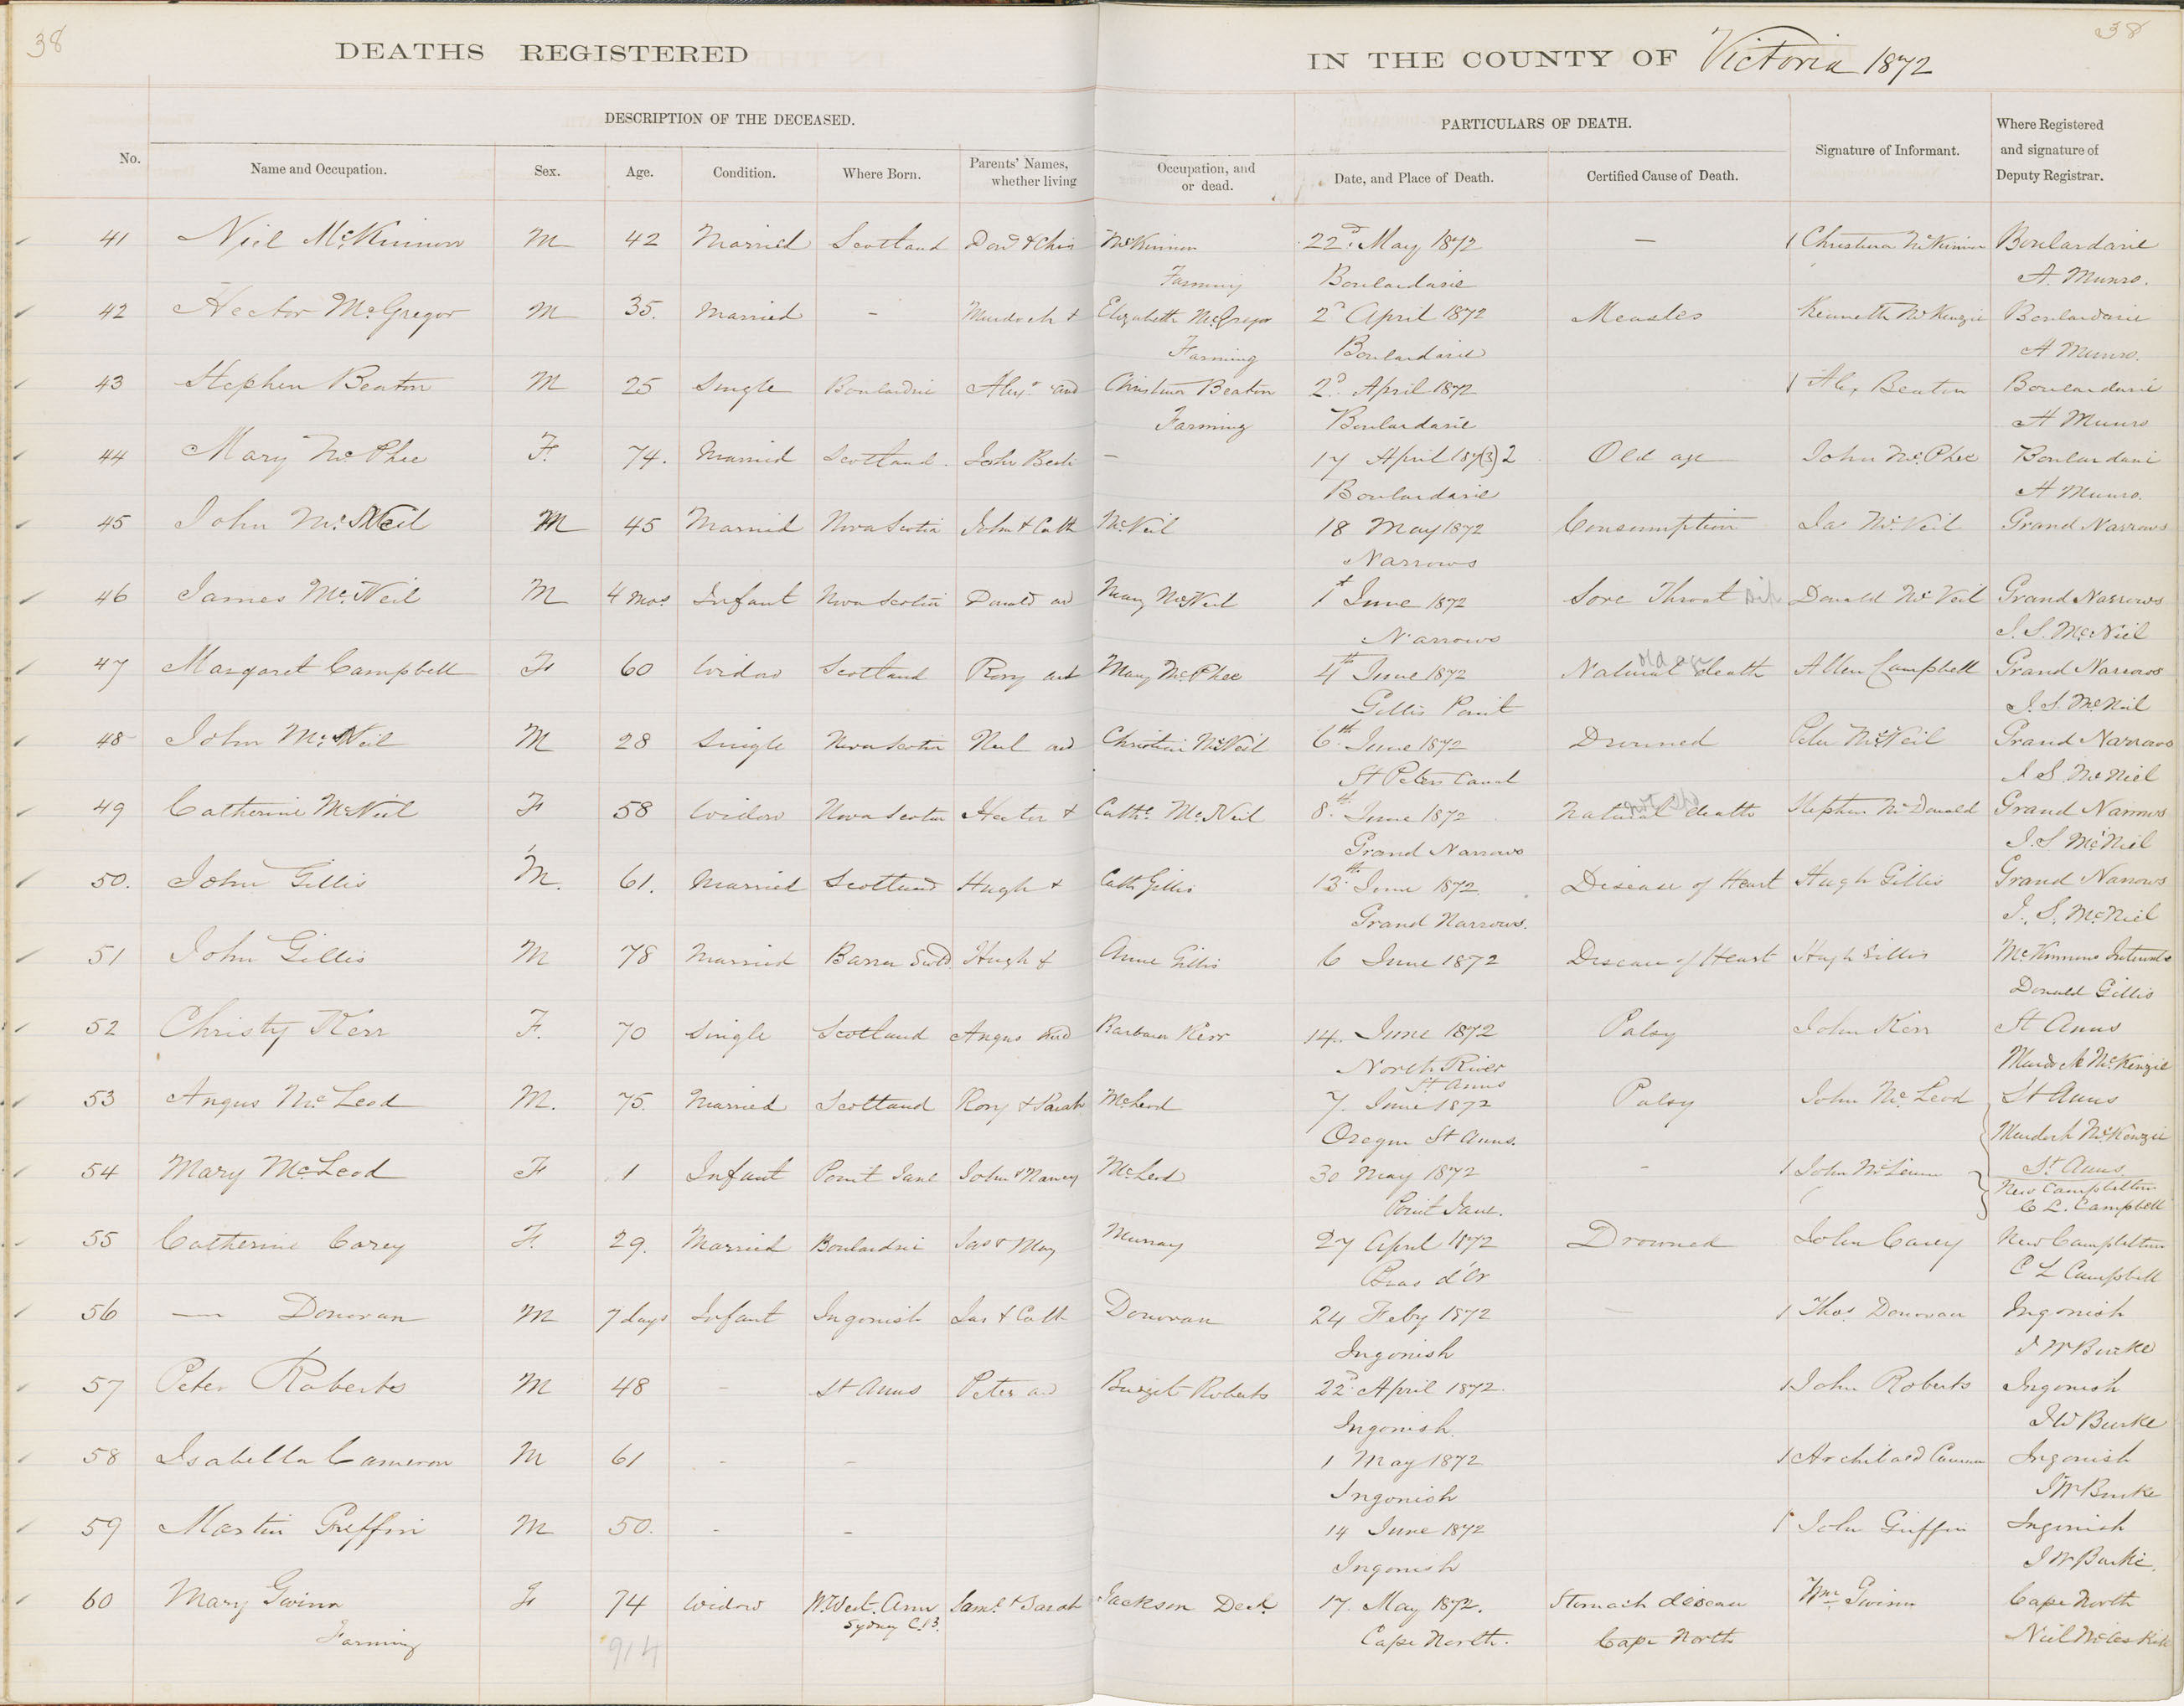 38
38
DEATHS REGISTERED IN THE COUNTY OF Victoria 1872
DESCRIPTION OF THE DECEASED.
PARTICULARS OF DEATH.
No. Name and Occupation. Sex. Age. Condition. Where Born. Parents' Names, whether living Occupation, and or dead. Date, and Place of Death. Certified Cause of Death. Signature of Informant. Where Registered and signature of Deputy Registrar.
41 Neil McKinnon M 42 Married Scotland Dond & Chris McKinnon 22d May 1872 — 1 Christina McKinnon Boulardarie
Farming Boulardarie A. Munro.
42 Hector McGregor M 35. Married - Murdoch & Elizabeth McGregor 2d April 1872 Measles Kenneth McKenzie Boulardarie
Farming Boulardarie A Munro.
43 Stephen Beaton M 25 Single Boulardrie Alexr and Christina Beaton 2d April 1872 1 Alex Beaton Boulardarie
Farming Boulardarie A Munro
44 Mary McPhee F. 74. Married Scotland. John — 17 April 187(3)2 Old age John McPhee Boulardarie
Boulardarie A Munro.
45 John McNeil M 45 Married Nova Scotia John & Cath McNeil 18 May 1872 Consumption Jas McNeil Grand Narrows
Narrows
46 James McNeil M 4 mos. Infant Nova Scotia Donald and Mary McNeil 1st June 1872 Sore Throat Donald McNeil Grand Narrows
Narrows J. S. McNeil
47 Margaret Campbell F 60 Widow Scotland Rory and Mary McPhee 4th June 1872 Natural death old age Allen Campbell Grand Narrows
Gillis Point J. S. McNeil
48 John McNeil M 28 Single Nova Scotia Neil and Christian McNeil 6th June 1872 Drowned Peter McNeil Grand Narrows
St Peters Canal J S. McNiel
49 Catherine McNeil F 58 Widow Nova Scotia Hector & Cathe McNeil 8th June 1872 Natural death Stephen McDonald Grand Narrows
Grand Narrows J. S McNeil
50. John Gillis M. 61. Married Scotland Hugh & Cath Gillis 13th June 1872 Disease of Heart Hugh Gillis Grand Narrows
Grand Narrows. J. S. McNeil
51 John Gillis M 78 Married Barra Scotd Hugh & Anne Gillis 6 June 1872 Disease of Heart Hugh Gillis McKinnons Intervale
Donald Gillis
52 Christy Kerr F. 70 Single Scotland Angus and Barbara Kerr 14. June 1872 Palsy John Kerr St Anns
North River Murdock McKenzie
St Anns
53 Angus McLeod M. 75. Married Scotland Rory & Sarah McLeod 7. June 1872 Palsy John McLeod St Anns
Oregon St Anns. Murdock McKenzie
54 Mary McLeod F 1 Infant Point Jane John & Nancy McLeod 30 May 1872 - 1 John St Anns
Point Jane. New Campbellton
C L. Campbell
55 Catherine Carey F. 29. Married Boulardrie Jas & May Murray 27 April 1872 Drowned John Carey New Campbellton
Bras d'Or C L Campbell
56 — Donovan M 7 days Infant Ingonish Jas & Cath Donovan 24 Feby 1872 — 1 Thos. Donovan Ingonish
Ingonish J W Burke
57 Peter Roberts M 48 - St Anns Peter and Burgit Roberts 22d April 1872. 1 John Roberts Ingonish
Ingonish. J W Burke
58 Isabella Cameron M 61 - - 1 May 1872 1 Archibald Ingonish
Ingonish J W Burke
59 Martin Greffin M 50. - - 14 June 1872 1 John Griffin Ingonish
Ingonish J W Burke.
60 Mary Gwinn F 74 Widow N. West. Arm Saml. & Sarah Jackson Decd. 17. May 1872. Stomach disease Wm. Gwinn Cape North
Farming Sydney C.B. Cape North. Cape North
914